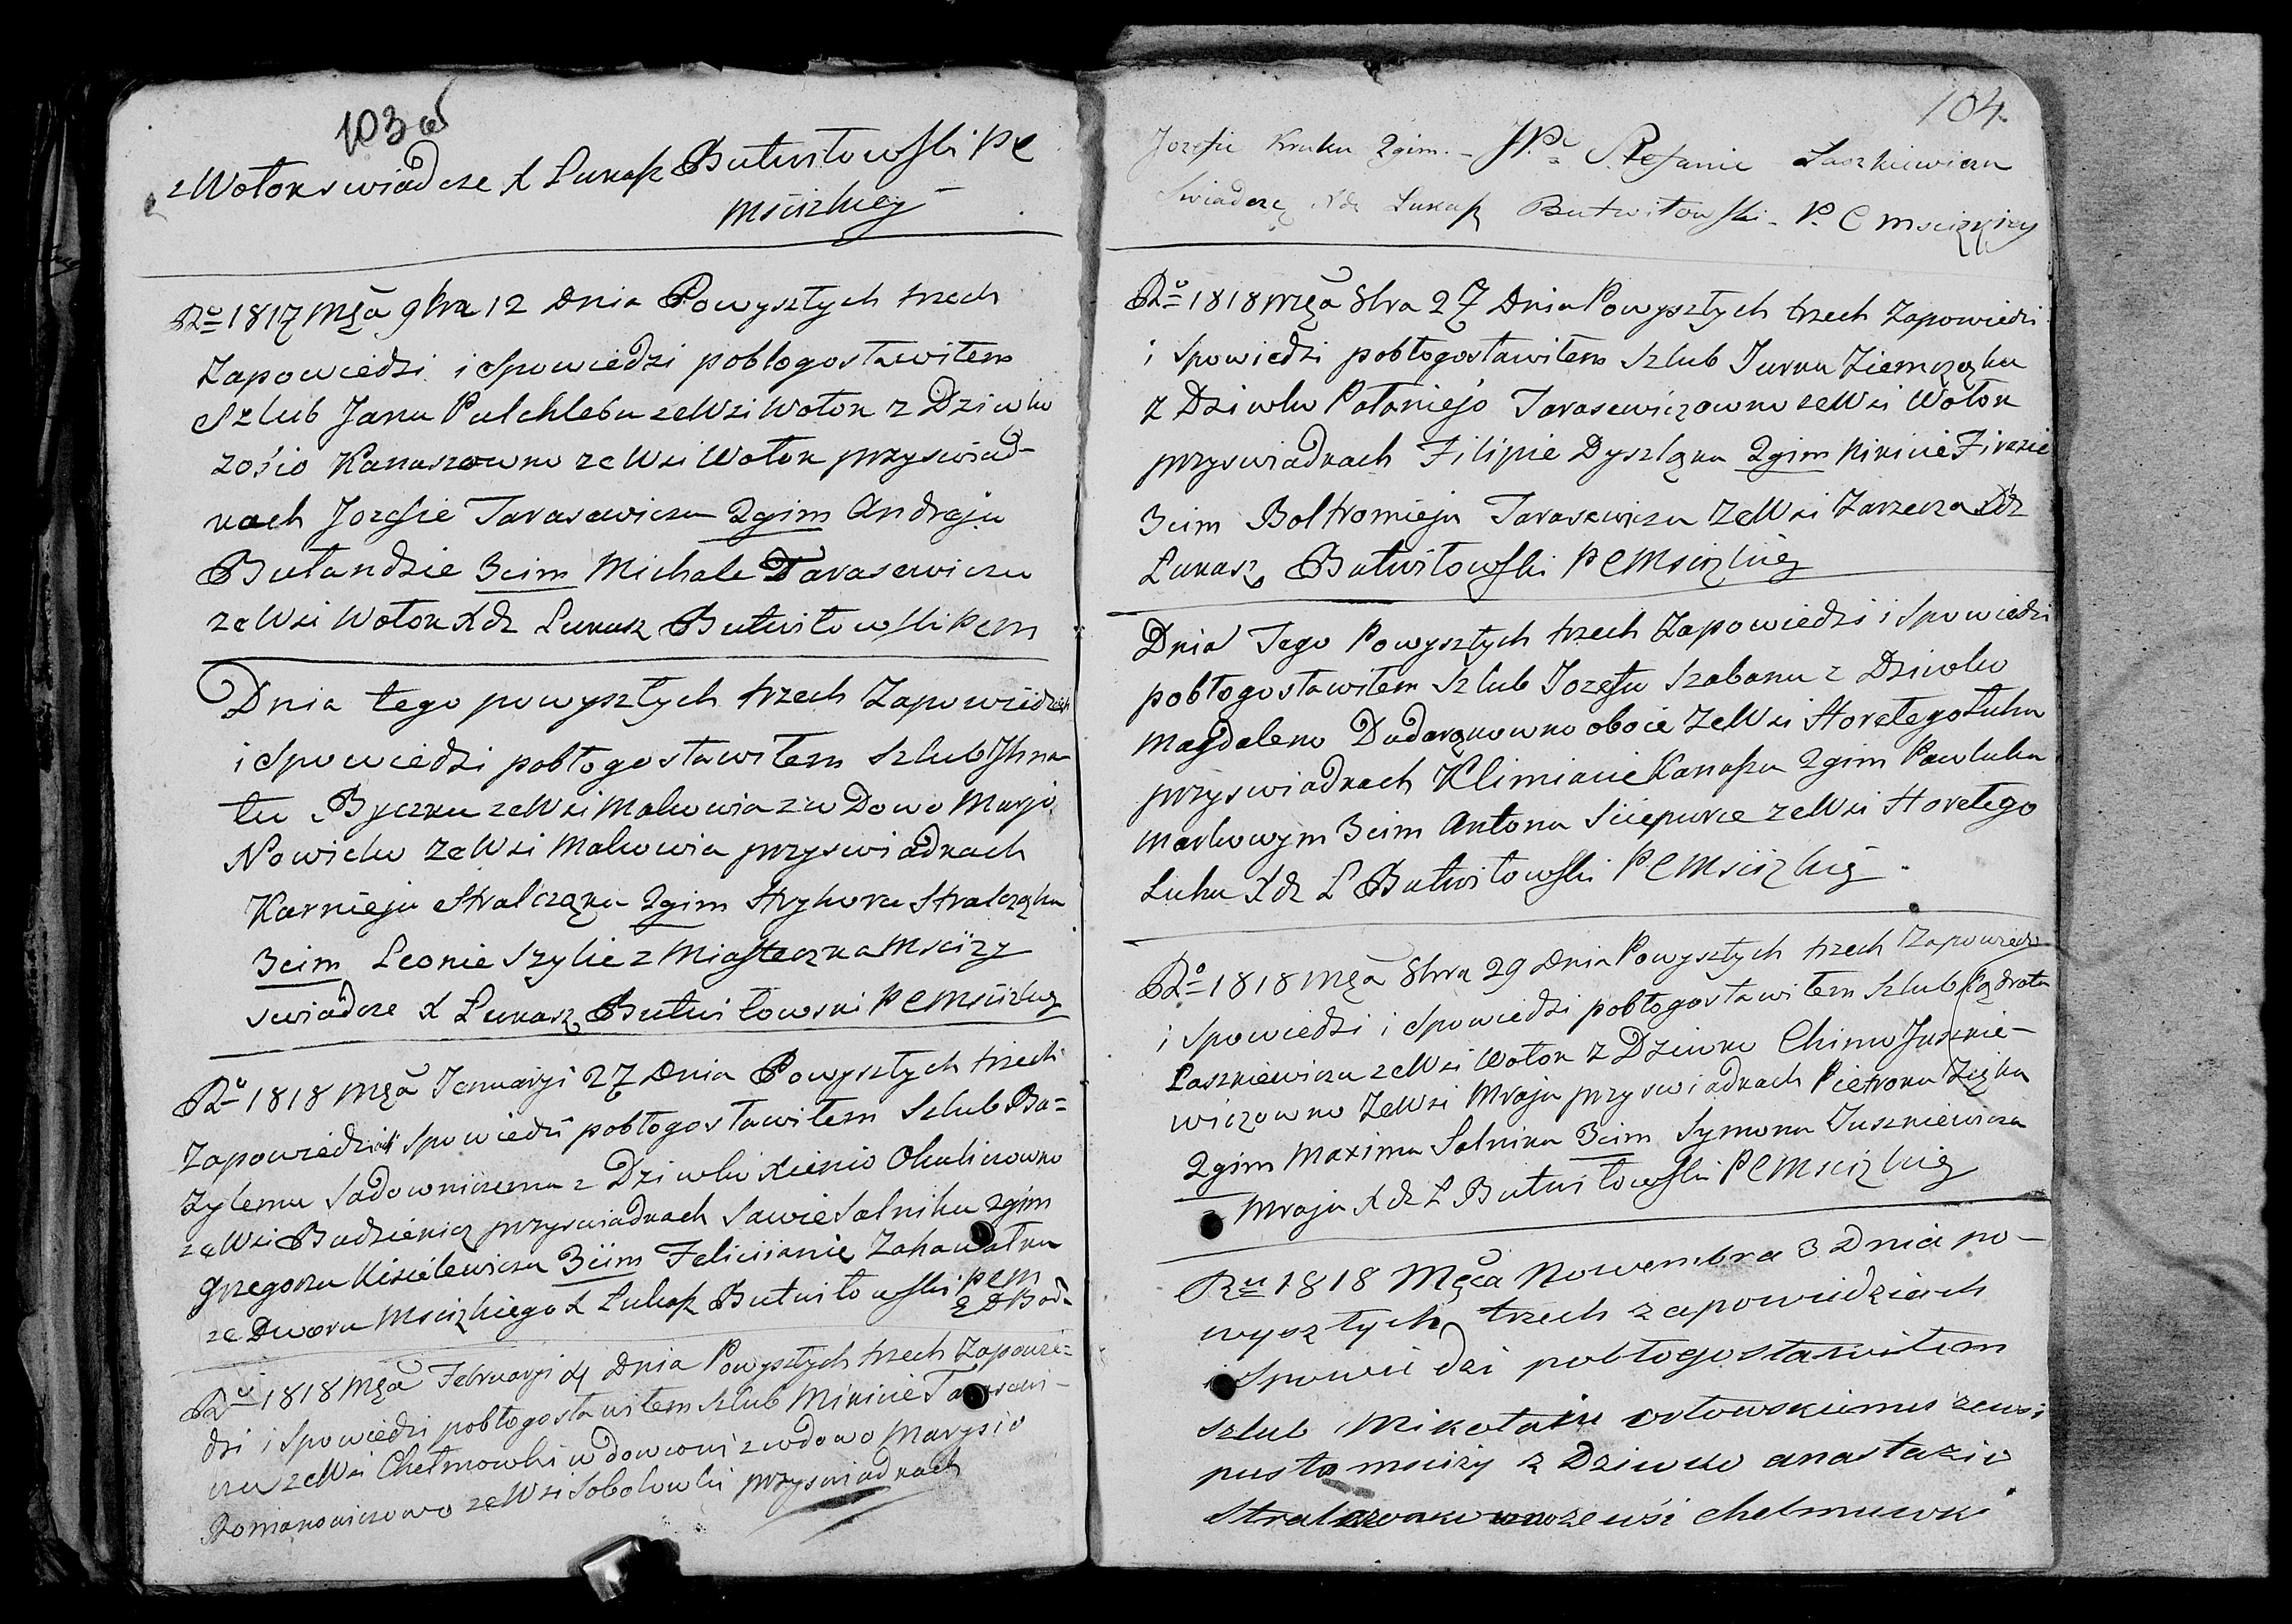 103 об
z Wołok swiadcze X Łukasz Butwiłowski PC
Msciżkiey
Rº 1817 Mca 9bra 12 Dnia Powyszłych trzech
Zapowiedzi i Spowiedzi pobłogosławiłem
Szlub Janu Pulchlebu ze Wsi Wołok z Dziwko
Zosio Kanaszowno ze Wsi Wołok przyswiad-
kach Jozefie Tarasewiczu 2gim Andreju
Butandzie 3cim Michale Tarasewiczu
ze Wsi Wołok Xdz Łukasz Butwiłowski PCM
Dnia tego powyszłych trzech Zapowiedziach
i Spowiedzi pobłogosławiłem Szlub Ihna-
tu Byczku ze Wsi Makowia z w Dowo Maryo
Nowicko ze Wsi Makowia przyswiadkach
Karnieju Stralcząku 2gim Hryhoru Stralcząku
3cim Leonie Szylie z Miasteczka Mscizy
swiadcze X Łukasz Butwiłowski PC Msciżkiey
Rº 1818 Mca Januaryi 27 Dnia Powyszłych trzech
Zapowiedziach Spowiedzi pobłogosławiłem Szlub Ba=
zylemu Sadowniczemu z Dziwko Xienio Okulicowno
ze Wsi Budzienicz przyswiadkach Sawie Salniku 2gim
Grzegorzu Kisielewiczu 3cim Felicijanie Zahawałku
ze Dworu Msciżkiego X Łukasz Butwiłowski PCM
Rº 1818 Mca Februaryi 4 Dnia Powyszłych trzech Zapowie=
dzi i Spowiedzi pobłogosławiłem Szlub Mikicie Tarasewi-
czu ze Wsi Chełmowki wdowcowi z wdowo Marysio
Romanowiczowo ze Wsi Sobolowki przyswiadkach
104
Jozefie Kruku 2gim - JPc Stefanie Laszkiewiczu
Swiadczę Xdz Łukasz Butwiłowski - P. C Msciżkiey
Rº 1818 Mca 8bra 27 Dnia Powyszłych trzech Zapowiedzi
i Spowiedzi pobłogosławiłem Szlub Jurku Ziemczęku
z Dziwko Połoniejo Tarasewiczowno ze Wsi Wołok
przyswiadkach Filipie Dyszląku 2gim Kikicie Firazie
3cim Boltromieju Tarasewiczu ze Wsi Zarzecza Xdz
Łukasz Butwiłowski PC Msciżkiey
Dnia Tego Powyszłych trzech Zapowiedzi i Spowiedzi
pobłogosławiłem Szlub Jozefu Szabanu z Dziwko
Magdaleno Dudarąkowno oboie ze Wsi Horełego Łuhu
przyswiadkach Klimianie Kanaszu 2gim Pawluku
Markowym 3cim Antonu Sciepurce ze Wsi Horełego
Łuhu Xdz Ł Butwiłowski PC Msciżkiey
Rº 1818 Mca 8bra 29 Dnia Powyszłych trzech Zapowiedzi
i Spowiedzi i Spowiedzi pobłogosławiłem Szlub Kądratu
Laszkiewiczu ze Wsi Wołok z Dziwko Chimo Juszkie-
wiczowno ze Wsi Mraja przyswiadkach Pietroku Zięku
2gim Maximu Salniku 3cim Symonu Juszkiewiczu
Mraja Xdz Ł Butwiłowski PC Msciżkiey
Ru 1818 Męca Nowembra 3 Dnia po-
wyszłych trzech zapowiedziach
i Spowiedzi pobłogosławiłem
szlub Mikołaiu orłowskiemu zewsi
pusto msciży z Dziwko anastazio
zewsi chełmuwki